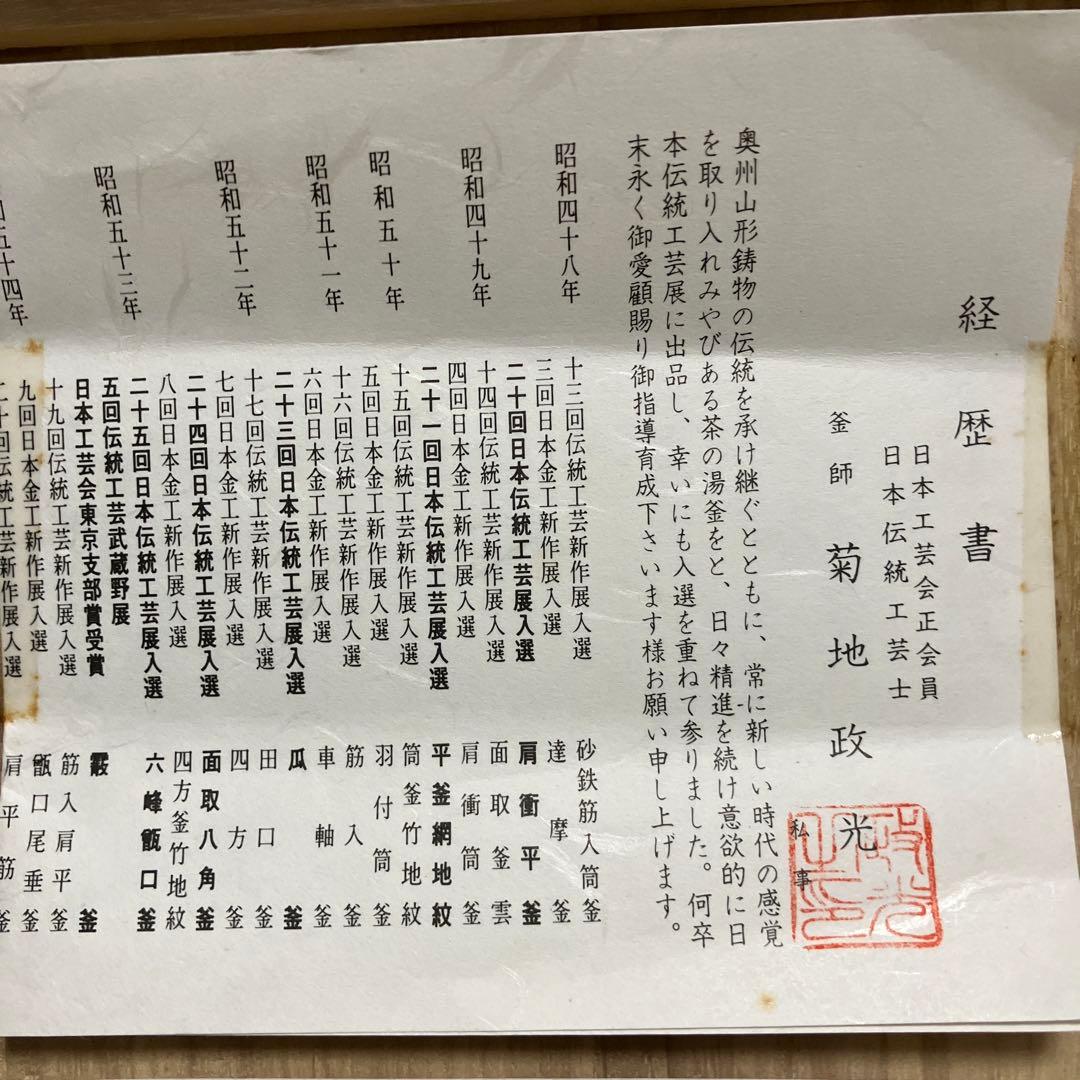 経歴書
日本工芸会正会員
日本伝統工芸士
釜師 菊地政光
私事
奥州山形鋳物の伝統を承け継ぐとともに、常に新しい時代の感覚
を取り入れみやびある茶の湯釜をと、日々精進を続け意欲的に日
本伝統工芸展に出品し、幸いにも入選を重ねて参りました。何卒
末永く御愛顧賜り御指導育成下さいます様お願い申し上げます。
昭和四十八年 十三回伝統工芸新作展入選 砂鉄筋入筒釜
三回日本金工新作展入選 達摩釜
二十回日本伝統工芸展入選 肩衝平釜
昭和四十九年 十四回伝統工芸新作展入選 面取釜雲
四回日本金工新作展入選 肩衝筒釜
二十一回日本伝統工芸展入選 平釜網地紋
昭和五十年 十五回伝統工芸新作展入選 筒釜竹地紋
五回日本金工新作展入選 羽付筒釜
昭和五十一年 十六回伝統工芸新作展入選 筋入釜
六回日本金工新作展入選 車軸釜
二十三回日本伝統工芸展入選 瓜釜
昭和五十二年 十七回伝統工芸新作展入選 田口釜
七回日本金工新作展入選 四方釜
二十四回日本伝統工芸展入選 面取八角釜
昭和五十三年 八回日本金工新作展入選 四方釜竹地紋
二十五回日本伝統工芸展入選 六峰甑口釜
五回伝統工芸武蔵野展
日本工芸会東京支部賞受賞 霰釜
五十四年 十九回伝統工芸新作展入選 筋入肩平釜
九回日本金工新作展入選 甑口尾垂釜
二十回伝統工芸新作展入選 肩平筋釜